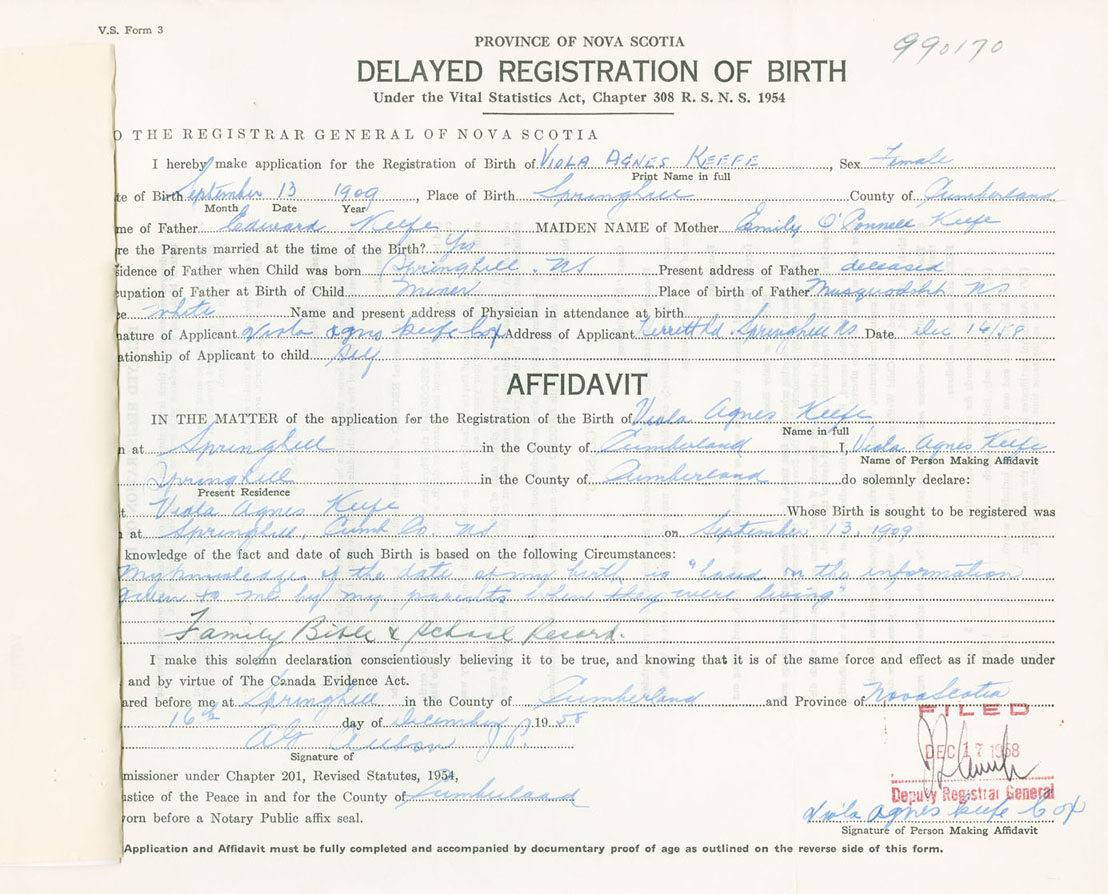 V.S. Form 3
PROVINCE OF NOVA SCOTIA
990170
DELAYED REGISTRATION OF BIRTH
Under the Vital Statistics Act, Chapter 308 R. S. N. S. 1954
O THE REGISTRAR GENERAL OF NOVA SCOTIA
I hereby make application for the Registration of Birth of VIOLA AGNES KEEFE, Sex Female
Print Name in full
te of Birth September 13 1909, Place of Birth Springhill County of Cumberland
Month Date Year
me of Father Edward Keefe MAIDEN NAME of Mother Emily O'Connell Keefe
re the Parents married at the time of the Birth? Yes
idence of Father when Child was born Springhill, NS Present address of Father deceased
upation of Father at Birth of Child Miner Place of birth of Father NS
e white Name and present address of Physician in attendance at birth
nature of Applicant Viola agnes keefe Cox Address of Applicant Rd. Springhill NS Date Dec 16/58
ationship of Applicant to child Self
AFFIDAVIT
IN THE MATTER of the application for the Registration of the Birth of Viola Agnes Keefe
Name in full
n at Springhill in the County of Cumberland I, Viola Agnes Keefe
Name of Person Making Affidavit
Springhill in the County of Cumberland do solemnly declare:
Present Residence
t Viola Agnes Keefe Whose Birth is sought to be registered was
at Springhill, Cumb Co, NS on September 13, 1909
knowledge of the fact and date of such Birth is based on the following Circumstances:
My knowledge of the date of my birth is "based on the information
given to me by my parents when they were living"
Family Bible & School Record.
I make this solemn declaration conscientiously believing it to be true, and knowing that it is of the same force and effect as if made under
and by virtue of The Canada Evidence Act.
ared before me at Springhill in the County of Cumberland and Province of Nova Scotia
16th day of December 1958
J.P.
Signature of
FILED
DEC 17 1958
Deputy Registrar General
missioner under Chapter 201, Revised Statutes, 1954,
ustice of the Peace in and for the County of Cumberland
orn before a Notary Public affix seal.
Viola agnes keefe Cox
Signature of Person Making Affidavit
Application and Affidavit must be fully completed and accompanied by documentary proof of age as outlined on the reverse side of this form.